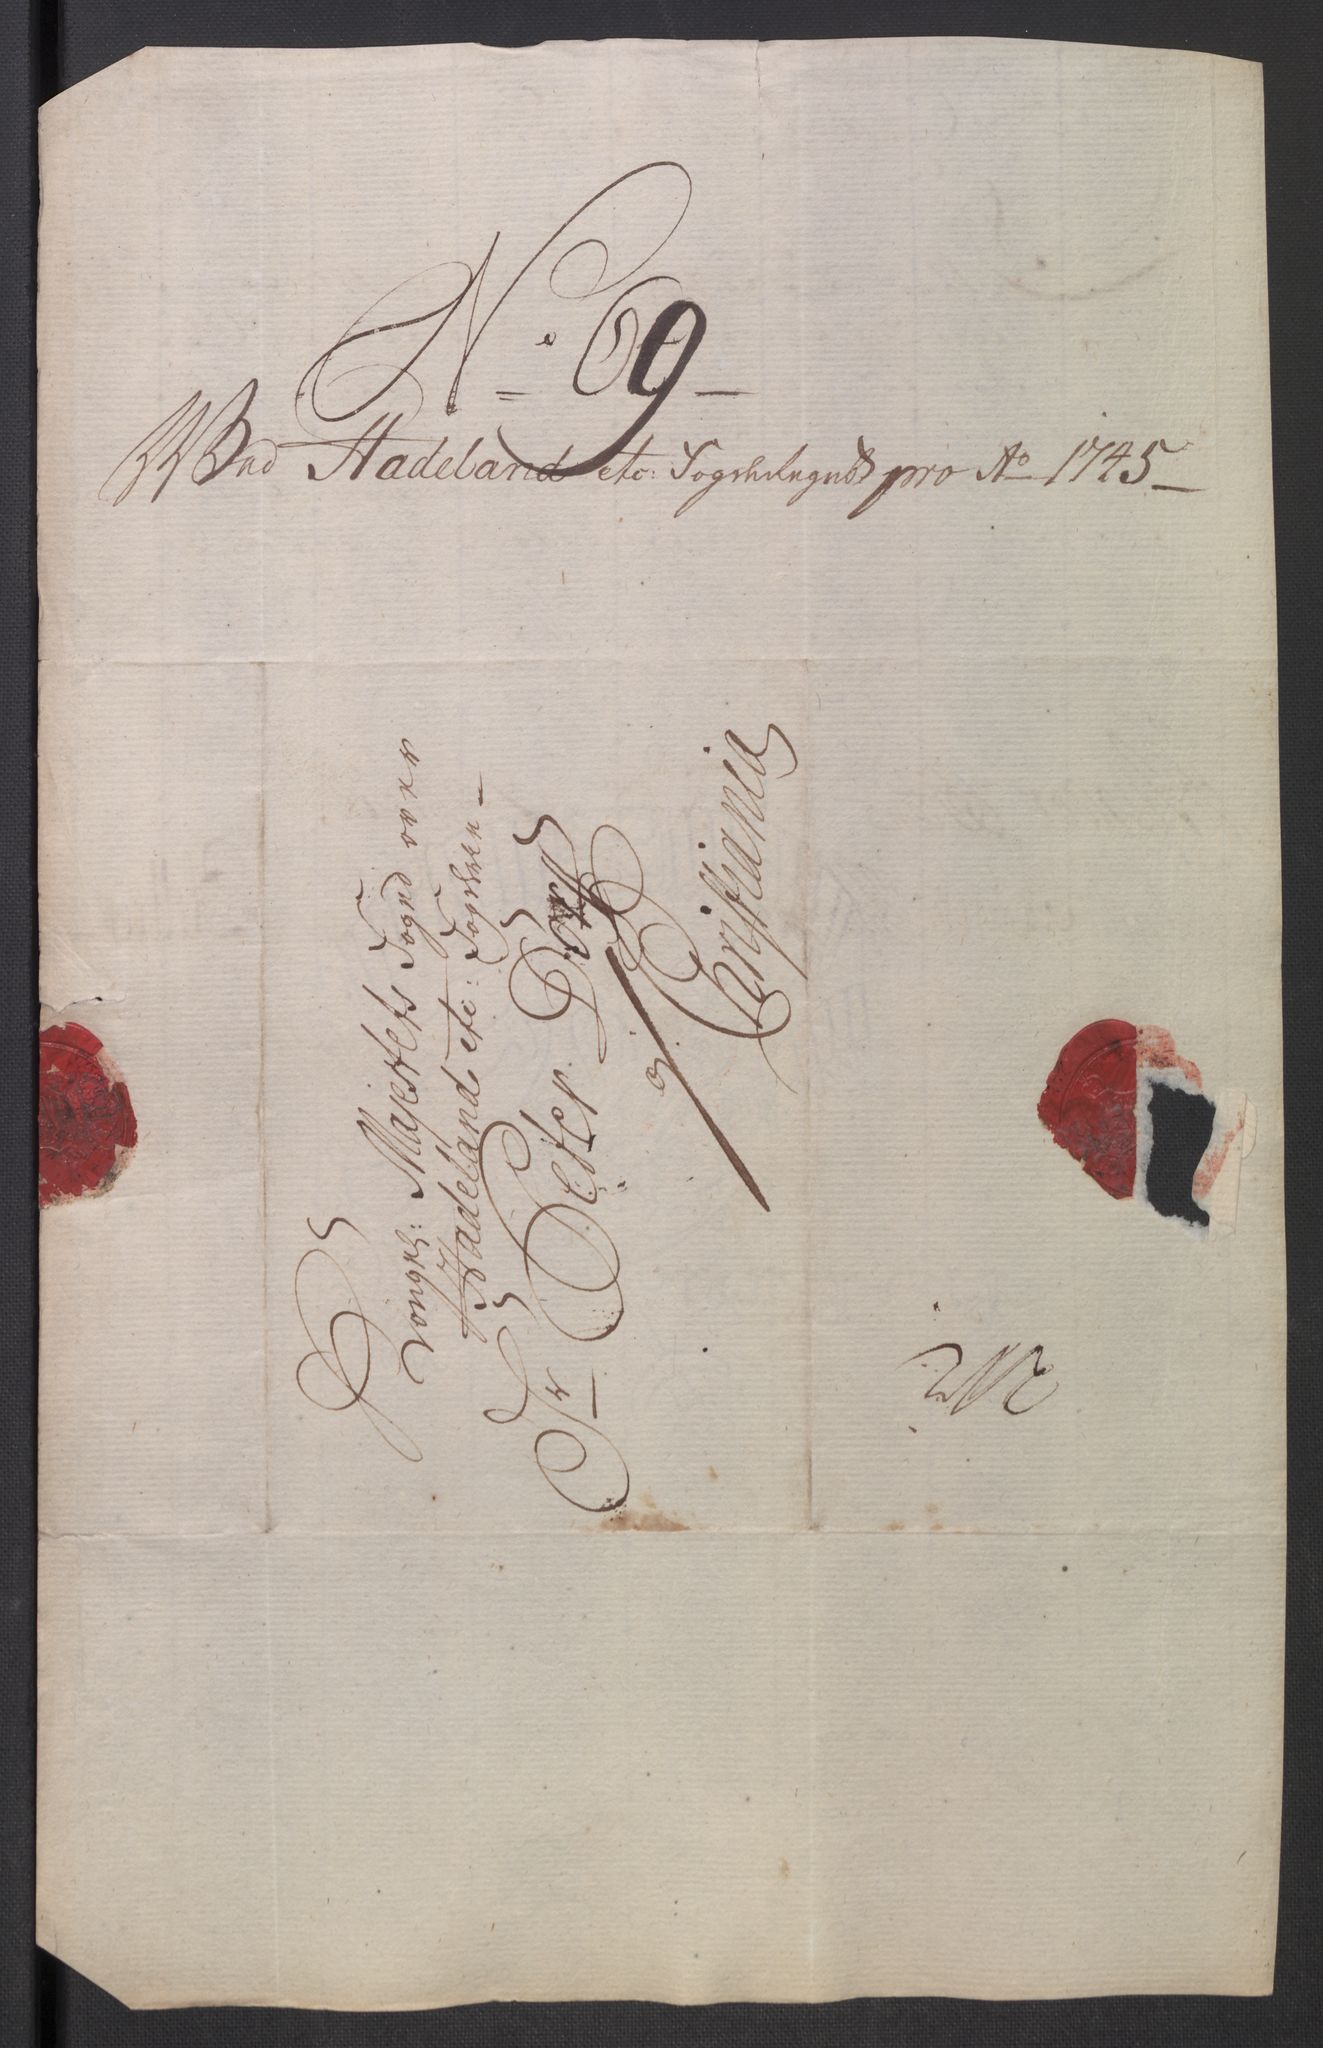 No 69
Ved Hadeland etc: Fogderegnsk pro Ao 1745
Kongel: Majestets Foged over
Hadeland etc: Fogderie
Sr Peter Dorff
a
Christiania